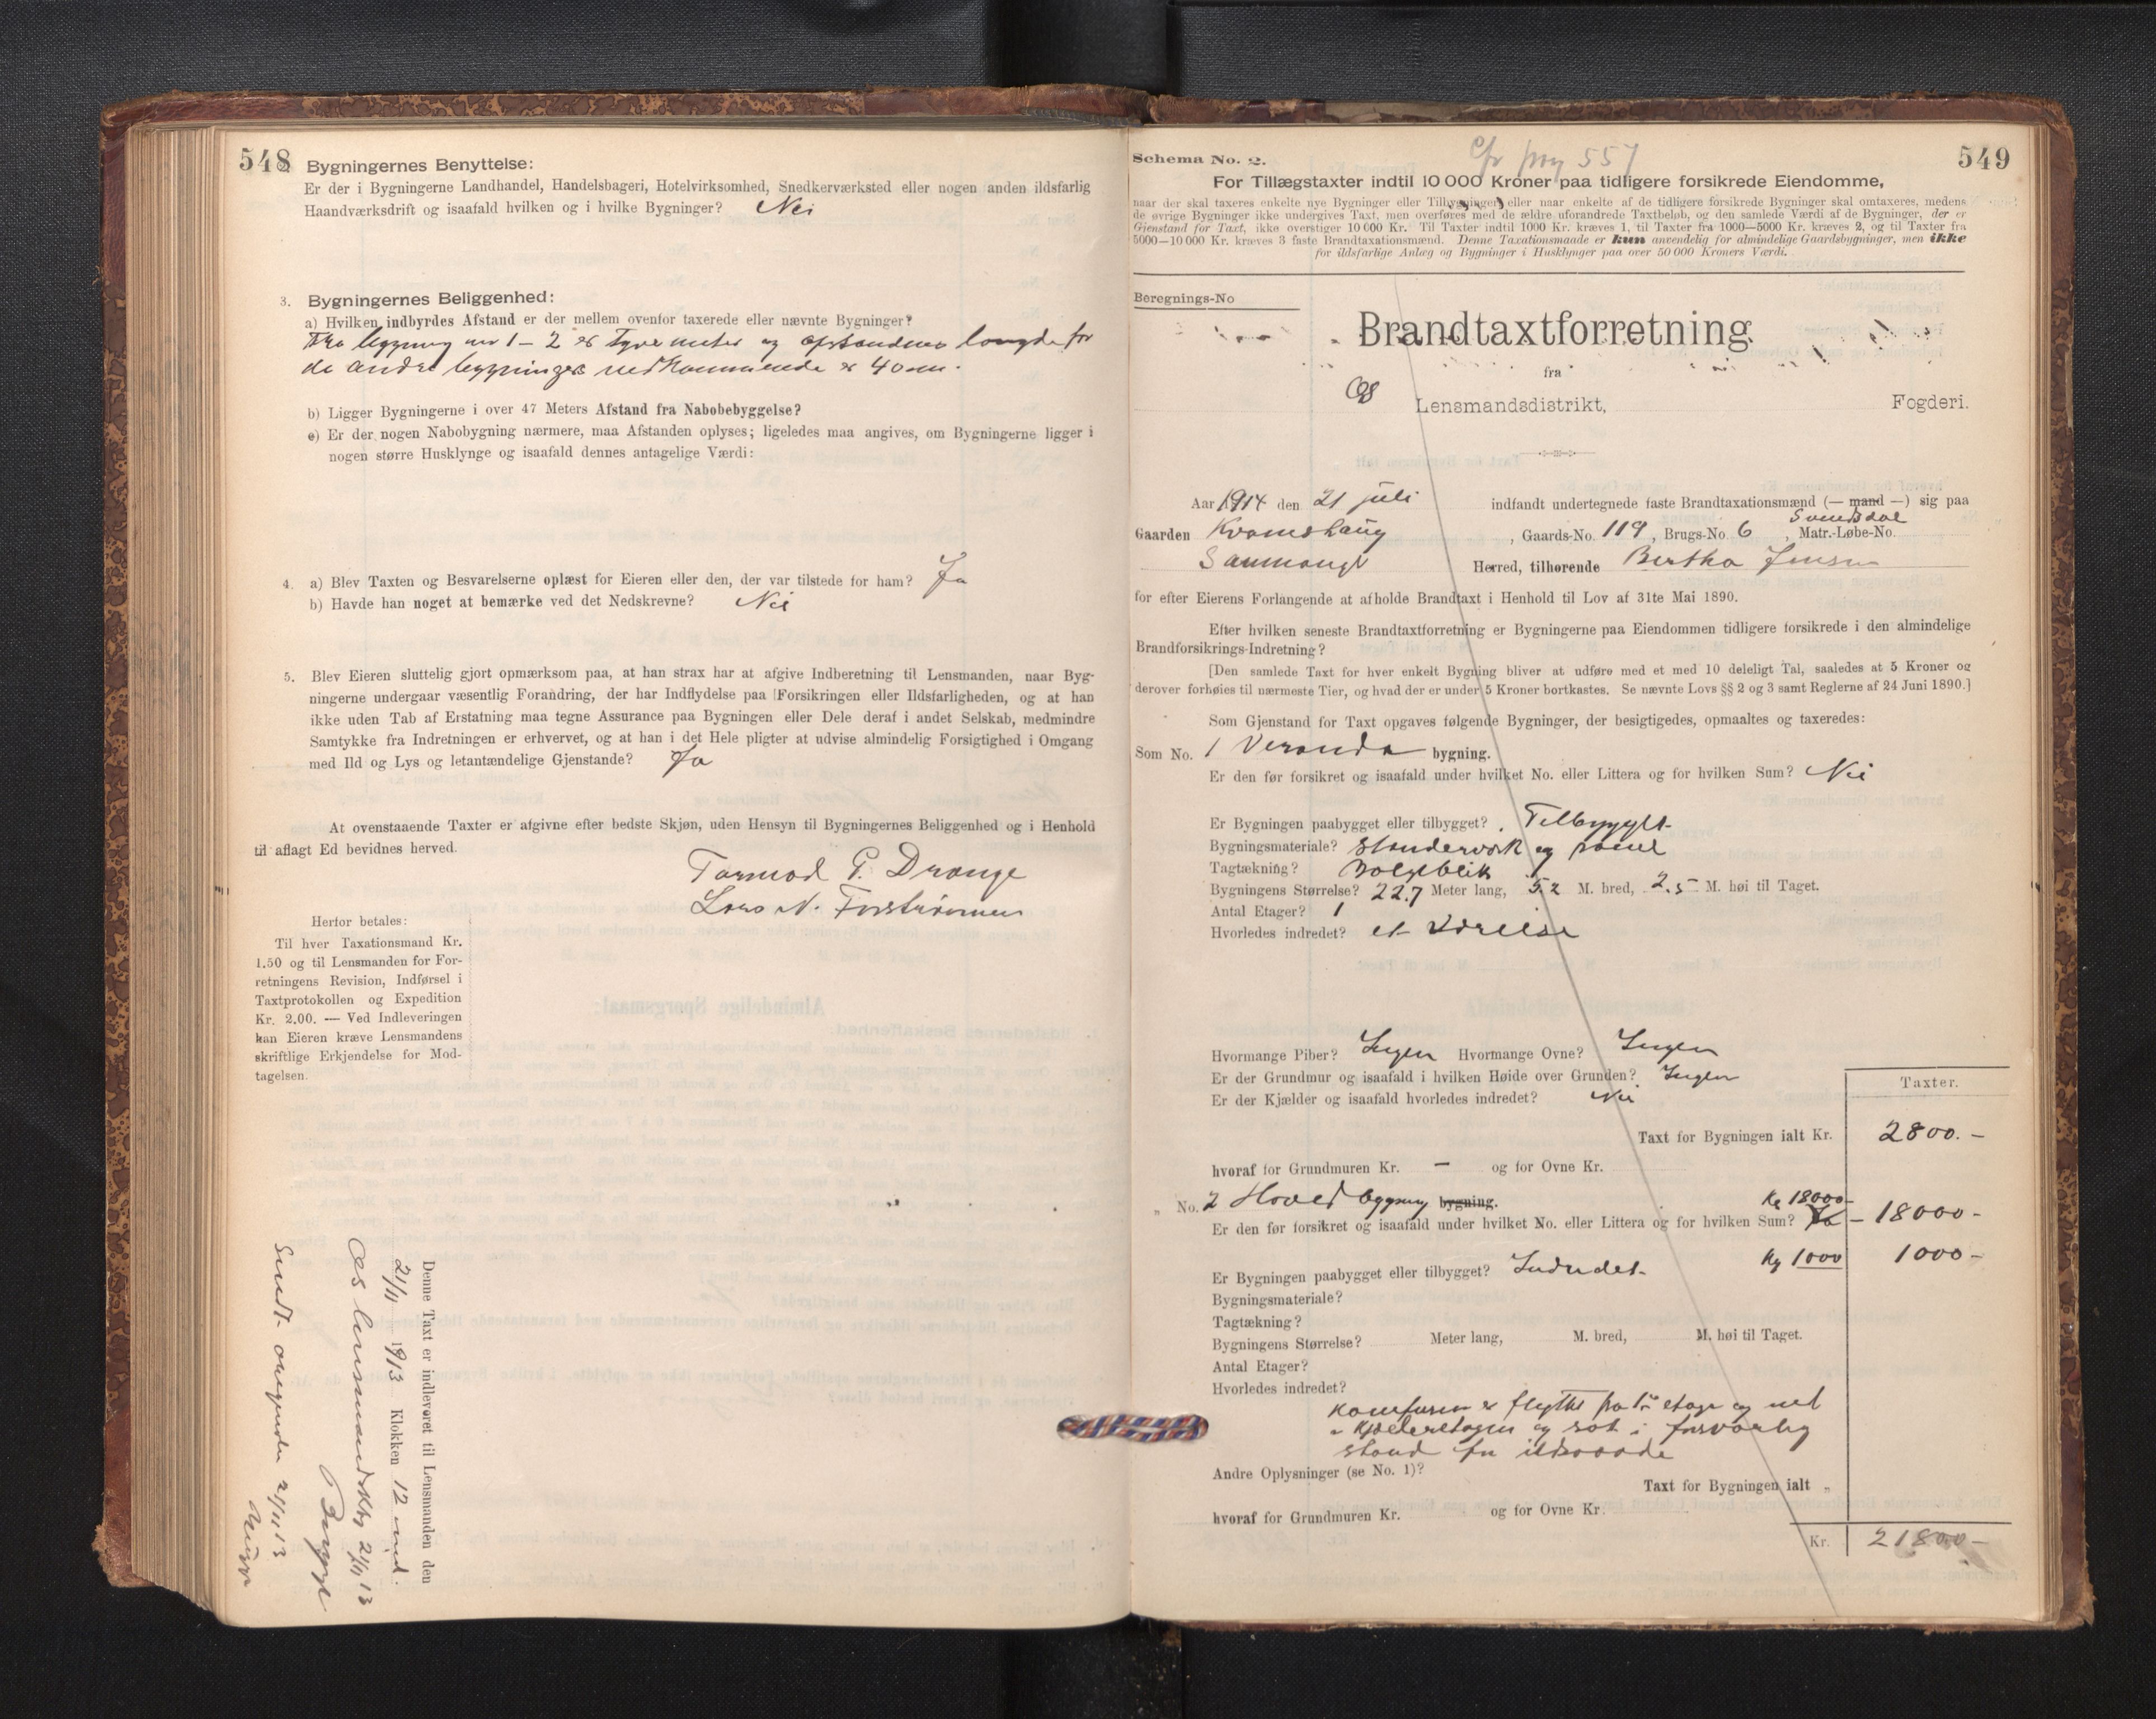 548
2. Bygningernes Benyttelse:
Er der i Bygningerne Landhandel, Handelsbageri, Hotelvirksomhed, Snedkerværksted eller nogen anden ildsfarlig
Haandværksdrift og isaafald hvilken og i hvilke Bygninger? Nei
3. Bygningernes Beliggenhed:
a) Hvilken indbyrdes Afstand er der mellem ovenfor taxerede eller nævnte Bygninger?
Fra bygning no 1 - 2 er tyve meter og afstanden longde for
de andre bygninger vedkommende er 40 m.
b) Ligger Bygningerne i over 47 Meters Afstand fra Nabobebyggelse?
c) Er der nogen Nabobygning nærmere, maa Afstanden oplyses; ligeledes maa angives, om Bygningerne ligger i
nogen større Husklynge og isaafald dennes antagelige Værdi:
4. a) Blev Taxten og Besvarelserne oplæst for Eieren eller den, der var tilstede for ham? Ja
b) Havde han noget at bemærke ved det Nedskrevne? Nei
5. Blev Eieren sluttelig gjort opmærksom paa, at han strax har at afgive Indberetning til Lensmanden, naar Byg-
ningerne undergaar væsentlig Forandring, der har Indflydelse paa Forsikringen eller Ildsfarligheden, og at han
ikke uden Tab af Erstatning maa tegne Assurance paa Bygningen eller Dele deraf i andet Selskab, medmindre
Samtykke fra Indretningen er erhvervet, og at han i det Hele pligter at udvise almindelig Forsigtighed i Omgang
med Ild og Lys og letantændelige Gjenstande? Ja
At ovenstaaende Taxter er afgivne efter bedste Skjøn, uden Hensyn til Bygningernes Beliggenhed og i Henhold
til aflagt Ed bevidnes herved.
Tormod P. Drange
Lars N.
Herfor betales:
Til hver Taxationsmand Kr.
1.50 og til Lensmanden for For-
retningens Revision, Indførsel i
Taxtprotokollen og Expedition
Kr. 2.00. — Ved Indleveringen
kan Eieren kræve Lensmandens
skriftlige Erkjendelse for Mod-
tagelsen.
Denne Taxt er indleveret til Lensmanden den
21/11 1913 Klokken 12 mid.
Os lensmandskt 21/11 13
21/11 13
549
Schema No. 2.
cfr pag 557
For Tillægstaxter indtil 10 000 Kroner paa tidligere forsikrede Eiendomme,
naar der skal taxeres enkelte nye Bygninger eller Tilbygninger, eller naar enkelte af de tidligere forsikrede Bygninger skal omtaxeres, medens
de øvrige Bygninger ikke undergives Taxt, men overføres med de ældre uforandrede Taxtbeløb, og den samlede Værdi af de Bygninger, der er
Gjenstand for Taxt, ikke overstiger 10 000 Kr. Til Taxter indtil 1000 Kr. kræves 1, til Taxter fra 1000—5000 Kr. kræves 2, og til Taxter fra
5000—10 000 Kr. kræves 3 faste Brandtaxationsmænd. Denne Taxationsmaade er kun anvendelig for almindelige Gaardsbygninger, men ikke
for ildsfarlige Anlæg og Bygninger i Husklynger paa over 50 000 Kroners Værdi.
Beregnings-No
Brandtaxtforretning
fra
Os Lensmandsdistrikt, Fogderi.
Aar 1914 den 21 juli indfandt undertegnede faste Brandtaxationsmænd (— mand —) sig paa
Gaarden Kvamshaug, Gaards-No. 119, Brugs-No. 6, Matr.-Løbe-No. Svendsdal
Samnanger Herred, tilhørende Bertha Jensen
for efter Eierens Forlangende at afholde Brandtaxt i Henhold til Lov af 31te Mai 1890.
Efter hvilken seneste Brandtaxtforretning er Bygningerne paa Eiendommen tidligere forsikrede i den almindelige
Brandforsikrings-Indretning?
[Den samlede Taxt for hver enkelt Bygning bliver at udføre med et med 10 deleligt Tal, saaledes at 5 Kroner og
derover forhøies til nærmeste Tier, og hvad der er under 5 Kroner bortkastes. Se nævnte Lovs §§ 2 og 3 samt Reglerne af 24 Juni 1890.]
Som Gjenstand for Taxt opgaves følgende Bygninger, der besigtigedes, opmaaltes og taxeredes:
Som No. 1 Veranda bygning.
Er den før forsikret og isaafald under hvilket No. eller Littera og for hvilken Sum? Nei
Er Bygningen paabygget eller tilbygget? Tilbygget
Bygningsmateriale? Standerverk og panel
Tagtækning? Bølgeblik
Bygningens Størrelse? 22.7 Meter lang, 5.2 M. bred, 2.5 M. høi til Taget.
Antal Etager? 1
Hvorledes indredet? et Værelse
Hvormange Piber? Ingen Hvormange Ovne? Ingen
Er der Grundmur og isaafald i hvilken Høide over Grunden? Ingen
Er der Kjælder og isaafald hvorledes indredet? Nei
Taxter.
Taxt for Bygningen ialt Kr. 2800.-
hvoraf for Grundmuren Kr. — og for Ovne Kr.
„ No. 2 Hovedbygning bygning. Kr 18000-
Er den før forsikret og isaafald under hvilket No. eller Littera og for hvilken Sum? Ja - 18000-
Er Bygningen paabygget eller tilbygget? Indredet Kr 1000 1000-
Bygningsmateriale?
Tagtækning?
Bygningens Størrelse? Meter lang, M. bred, M. høi til Taget.
Antal Etager?
Hvorledes indredet?
Komfuren er flyttet fra 1ste etage og ned
i Kjelleretagen og sat i forsvarlig
stand for ildsvaade
Andre Oplysninger (se No. 1)?
Taxt for Bygningen ialt „
hvoraf for Grundmuren Kr. og for Ovne Kr.
Kr. 21800-